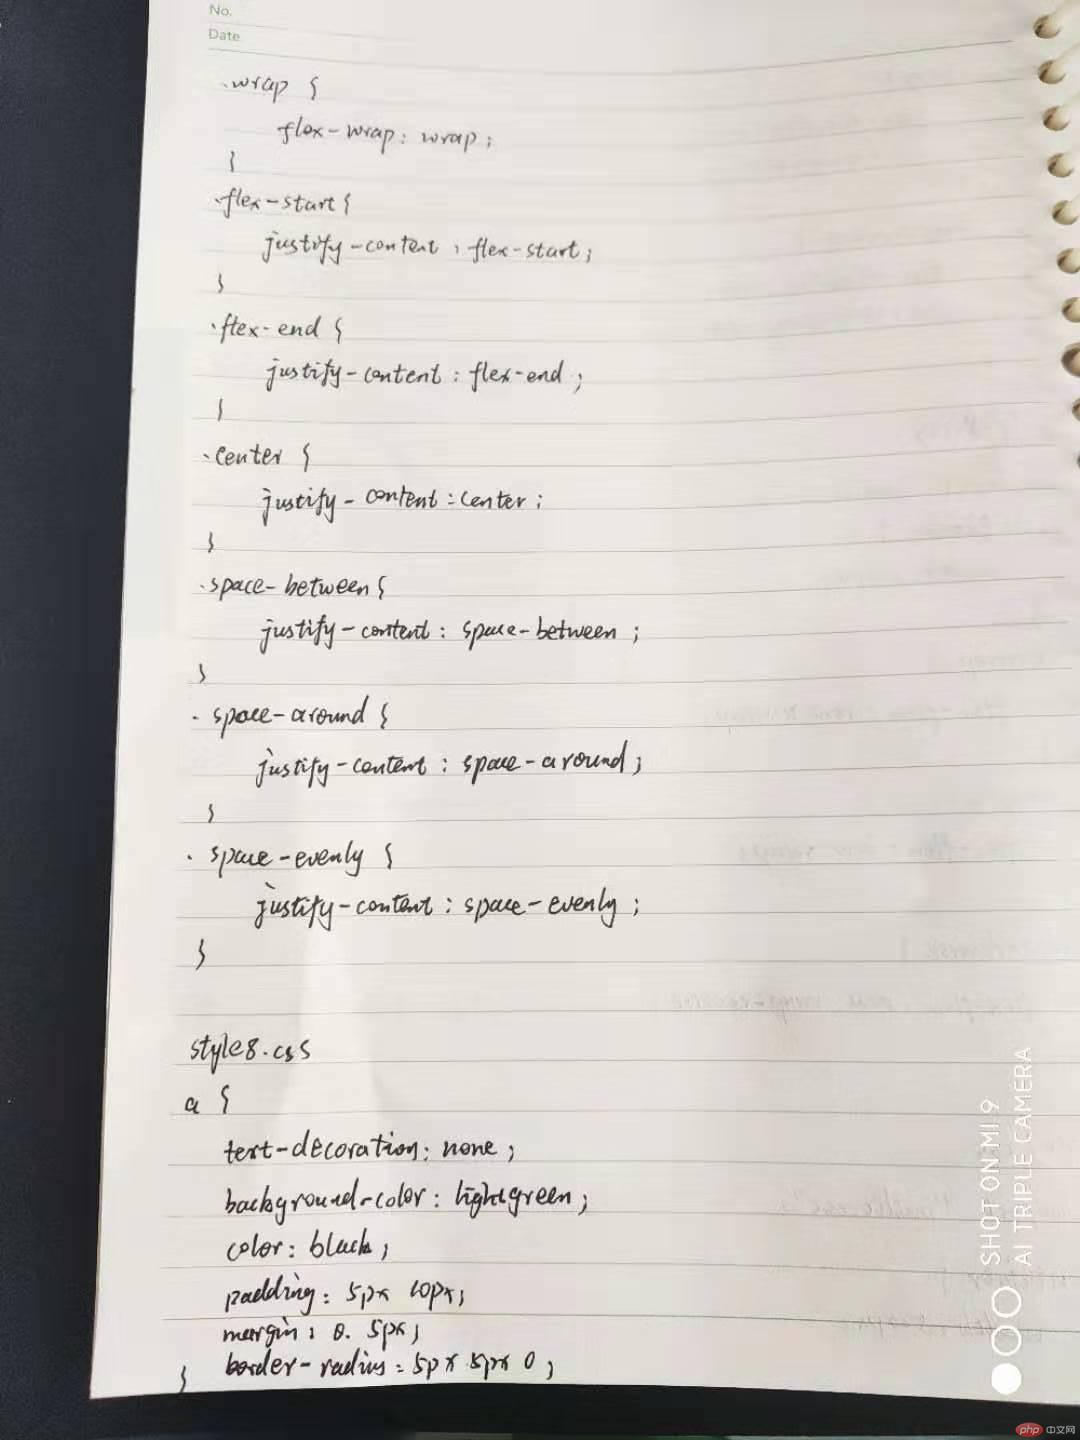 No.
Date
.wrap {
flex-wrap: wrap;
}
.flex-start{
justify-content : flex-start;
}
.flex-end {
justify-content : flex-end ;
}
.center {
justify-content :center ;
}
.space-between {
justify-content : space-between ;
}
. space-around {
justify-content : space-around ;
}
. space-evenly {
justify-content : space-evenly ;
}
style8.css
a {
text-decoration: none ;
background-color: lightgreen ;
color: black ;
padding: 5px 10px;
margin: 0. 5px;
border-radius: 5px 5px 0 ;
}
SHOT ON MI 9
AI TRIPLE CAMERA
php 中文网